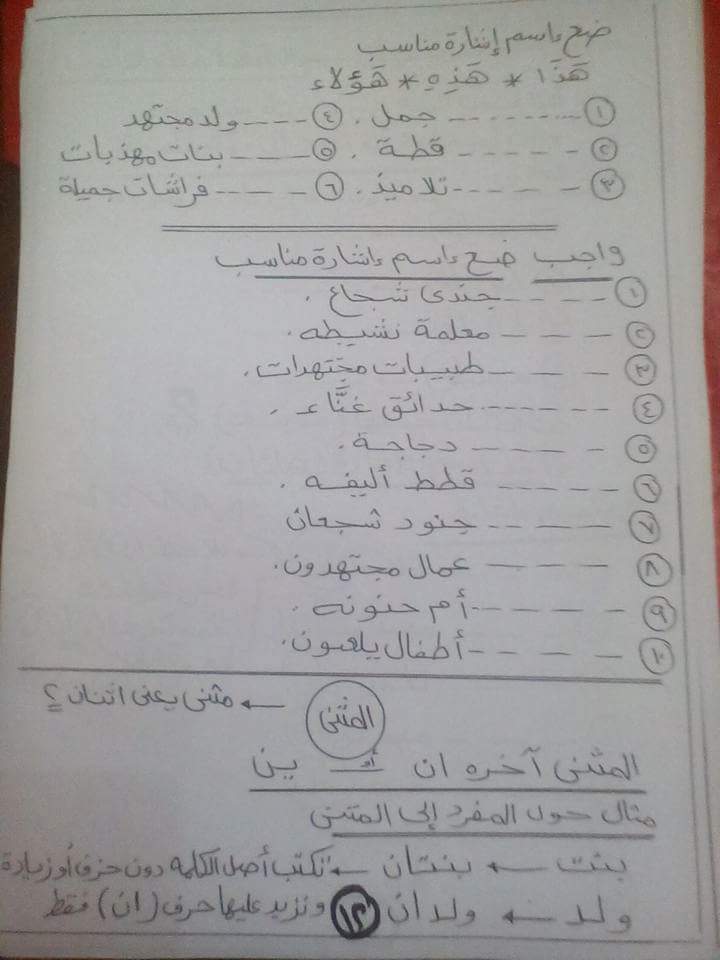 ضع ءاسم إشارة مناسب
هَذَا * هَذِهِ * هَؤُلاء
١ --------- جمل . ٤ ---- ولد مجتهد
٢ ----- قطة . ٥ ---- بنات مهذبات
٣ -----تلاميذ . ٦ ----- فراشات جميلة
واجب ضع ءاسم ءاشارة مناسب
١ -----جندى شجاع .
٢ ---- معلمة نشيطه.
٣ -----طبيبات مجتهدات.
٤ ------- حدائق غنَّاء .
٥ ----- دجاجة.
٦ ----- قطط أليفه .
٧ ----- جنود شجعان
٨ ---- عمال مجتهدون.
٩ ------أم حنونه .
١٠ -----أطفال يلعبون.
المثنى ← مثنى يعنى اتنان ؟
المثنى آخره ان أو ين
مثال حول المفرد إلى المثنى
بنت ← بنتان ← نكتب أصل الكلمه دون حزف أو زيادة
ولد ← ولدان ١٢ ونزيد عليها حرف (ان) فقط